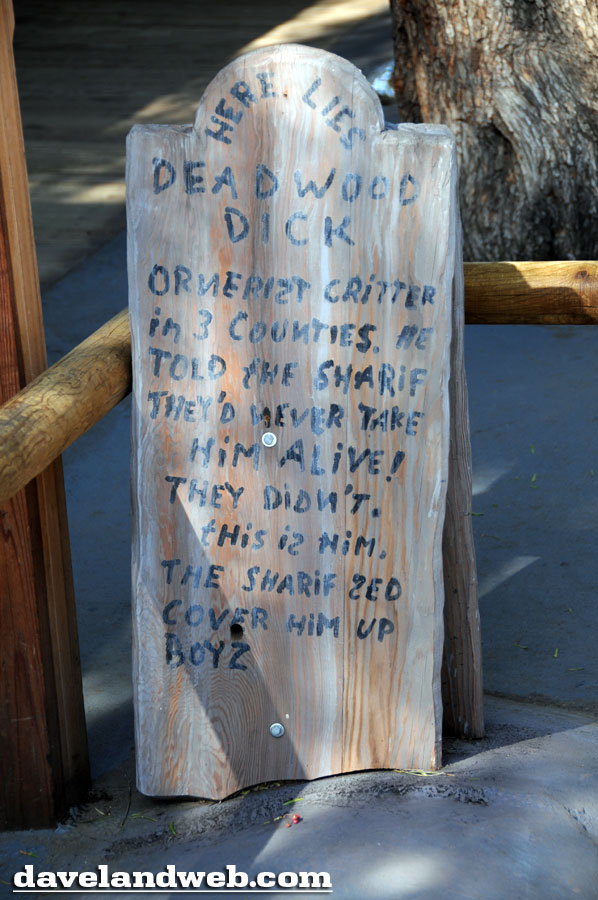 HERE LIES
DEADWOOD
DICK
ORNERIST CRITTER
in 3 COUNTIES. HE
TOLD tHE SHARIF
THEY'D NEVER TAKE
HiM ALiVE!
THEY DiDN'T.
tHIS iS HIM.
THE SHARIF SED
COVER HIM UP
BOYZ
davelandweb.com